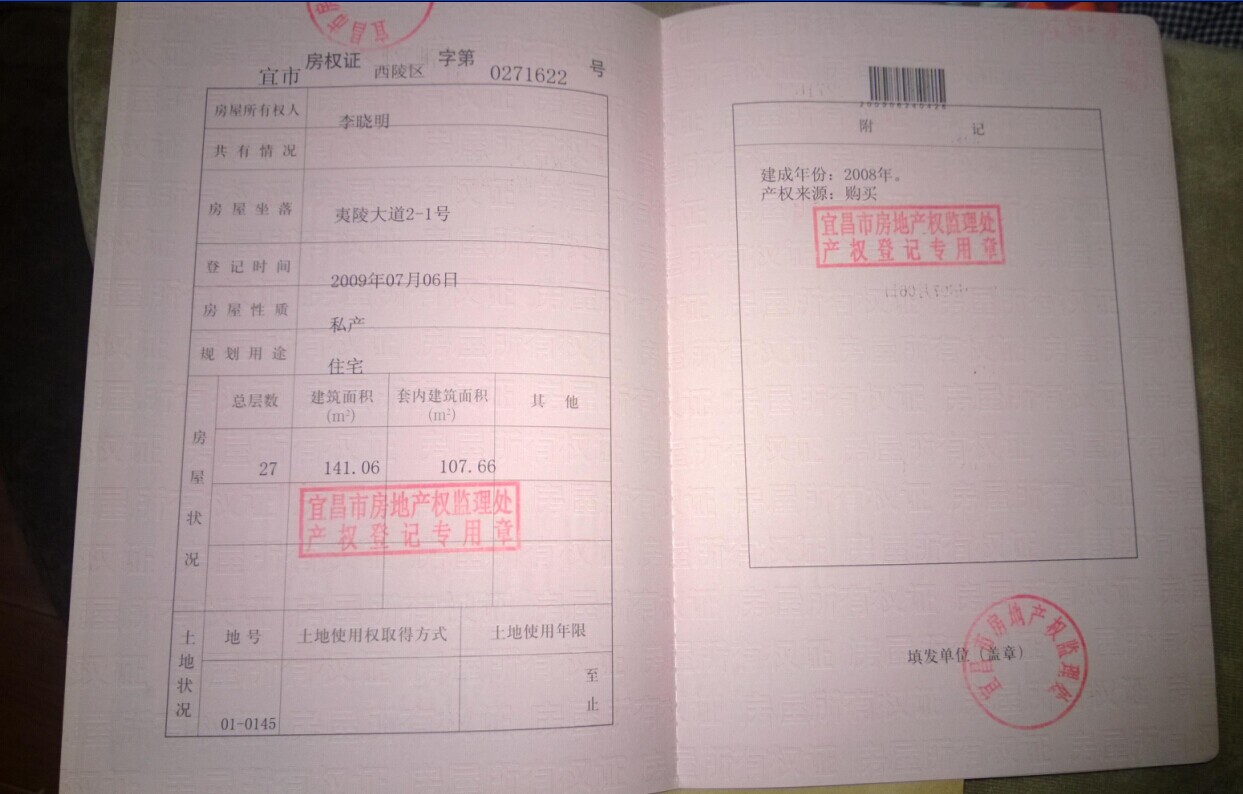 宜昌市房
宜市房权证西陵区字第0271622号
房屋所有权人 李晓明
共有情况
房屋坐落 夷陵大道2-1号
登记时间 2009年07月06日
房屋性质 私产
规划用途 住宅
房屋状况
总层数 建筑面积(m²) 套内建筑面积(m²) 其他
27 141.06 107.66
宜昌市房地产权监理处
产权登记专用章
土地状况
地号 土地使用权取得方式 土地使用年限
01-0145 至
止
附记
建成年份：2008年。
产权来源：购买
宜昌市房地产权监理处
产权登记专用章
填发单位（盖章）
宜昌市房地产权监理处